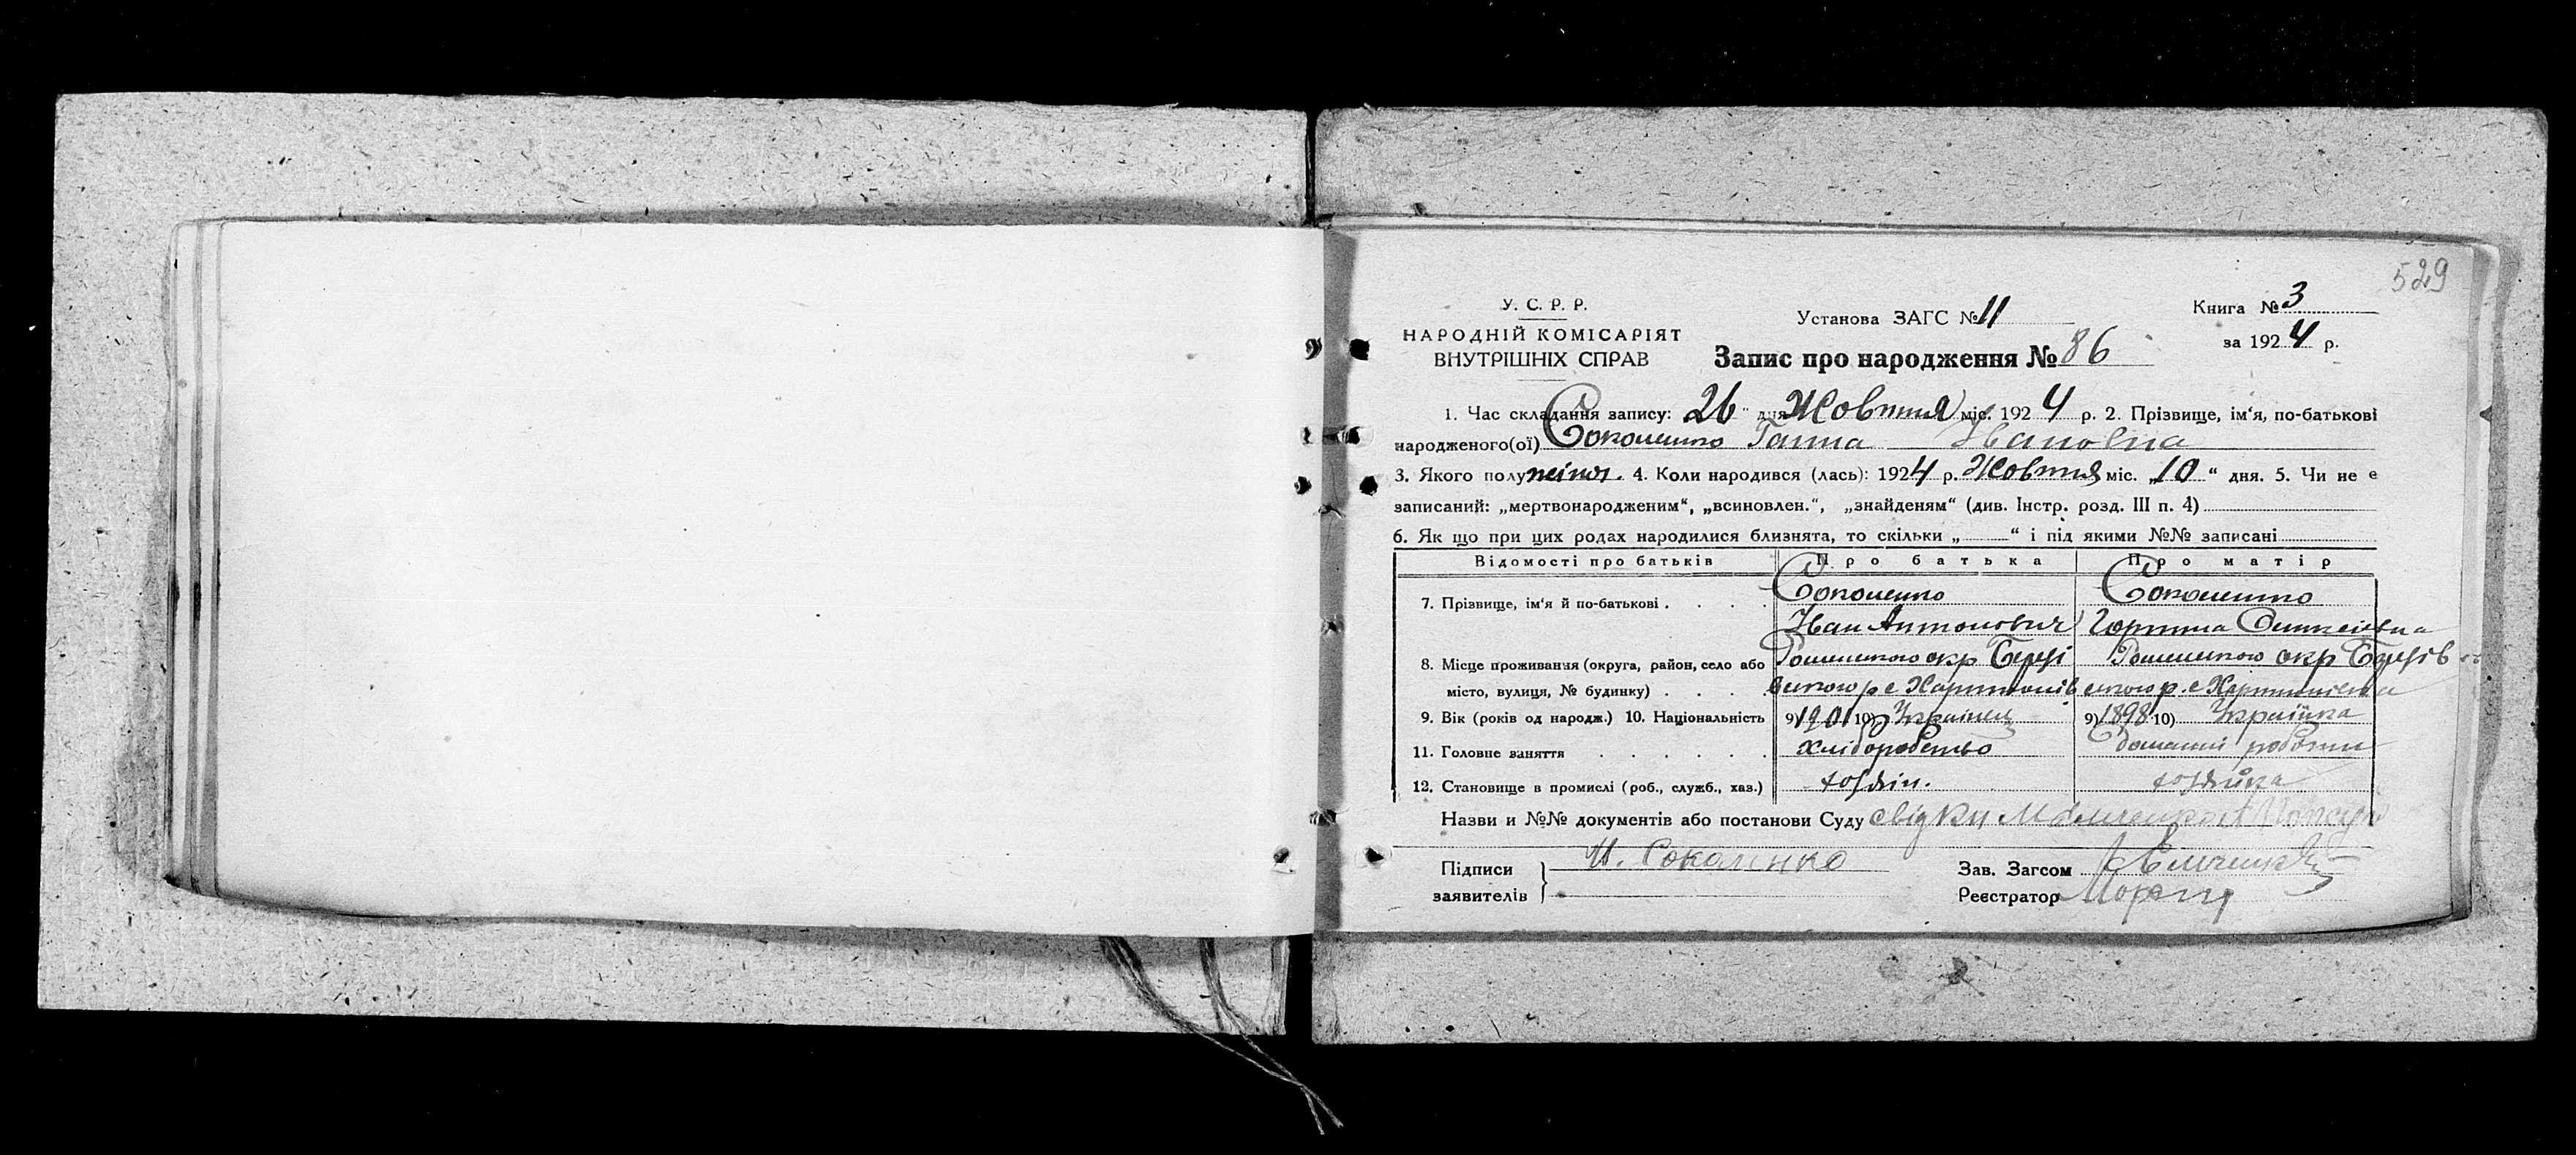 529
У. С. Р. Р.
НАРОДНІЙ КОМІСАРІЯТ
ВНУТРІШНІХ СПРАВ
Установа ЗАГС № 11
Книга № 3
за 1924 р.
Запис про народження № 86
1. Час складання запису: 26 " дня Жовтня міс. 1924 р. 2. Прізвище, ім'я, по-батькові
народженого(ої) Соколенко Ганна Івановна
3. Якого полу жіноч. 4. Коли народився (лась): 1924 р. Жовтня міс. „10“ дня. 5. Чи не е
записаний: „мертвонародженим“, „всиновлен.“, „знайденям“ (див. Інстр. розд. III п. 4)
6. Як що при цих родах народилися близнята, то скільки „ “ і під якими №№ записані
Відомості про батьків Про батька Про матір
7. Прізвище, ім'я й по-батькові . . . . Соколенко Соколенко
Іван Антонович Горпина
8. Місце проживання (округа, район, село або Роменского окр Роменского окр
місто, вулиця, № будинку) . . . .
9. Вік (років од народж.) 10. Національність 9) 1901 10) Українец 9) 1898 10) Українка
11. Головне заняття . . . . . . хліборобство домашні роботи
12. Становище в промислі (роб., служб., хаз.) хозяін. хозяйка
Назви и №№ документів або постанови Суду свідки
Підписи заявителів } И. Соколенко
Зав. Загсом
Реєстратор